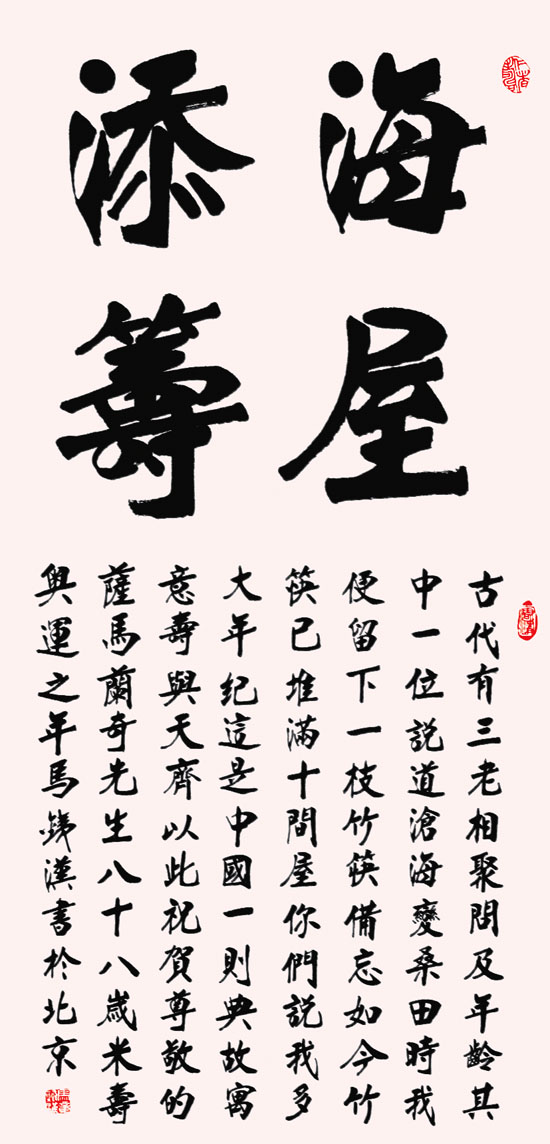 海屋
添籌
古代有三老相聚問及年齡其
中一位説道滄海變桑田時我
便留下一枝竹筷備忘如今竹
筷已堆滿十間屋你們説我多
大年纪這是中國一則典故寓
意壽與天齊以此祝賀尊敬的
薩馬蘭奇先生八十八歲米壽
奥運之年馬鐵漢書於北京